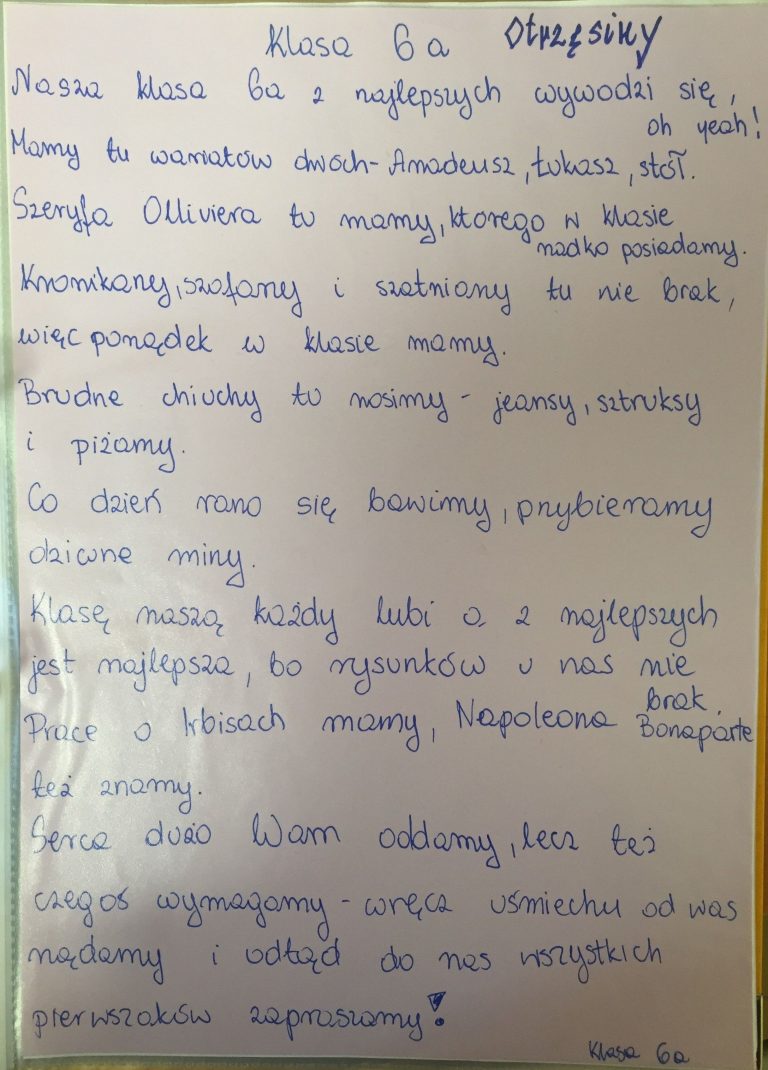 Klasa 6a Otrzęsiny
Nasza klasa 6a z najlepszych wywodzi się,
oh yeah!
Mamy tu wariatów dwóch - Amadeusz, Łukasz, stół.
Szeryfa Olliviera tu mamy, którego w klasie
rzadko posiadamy.
Kronikarzy, szofarzy i szatniarzy tu nie brak,
więc porządek w klasie mamy.
Brudne chiuchy tu nosimy - jeansy, sztruksy
i piżamy.
Co dzień rano się bawimy, przybieramy
dziwne miny.
Klasę naszą każdy lubi a z najlepszych
jest najlepsza, bo rysunków u nas nie
brak.
Prace o Irbisach mamy, Napoleona Bonaparte
też znamy.
Serca dużo Wam oddamy, lecz też
czegoś wymagamy - wręcz uśmiechu od was
rządamy i odtąd do nas wszystkich
pierwszaków zapraszamy!
Klasa 6a